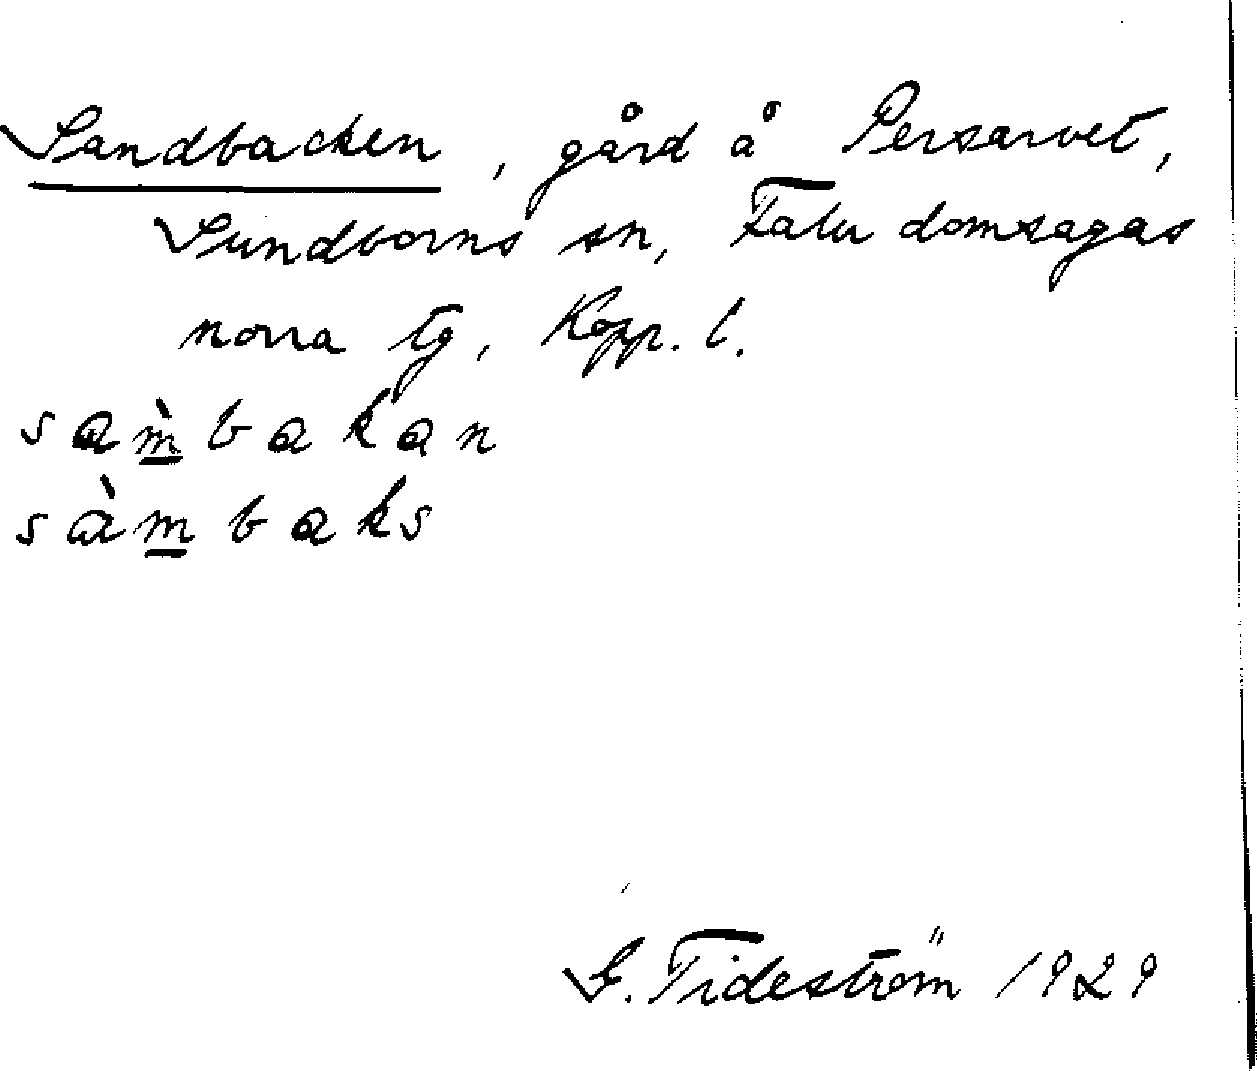 Sandbacken, gård å Persarvet,
Sundborns sn, Falu domsagas
norra tg, Kopp. l.
sam̲̀bakan
sàm̲baks
G. Tideström 1929